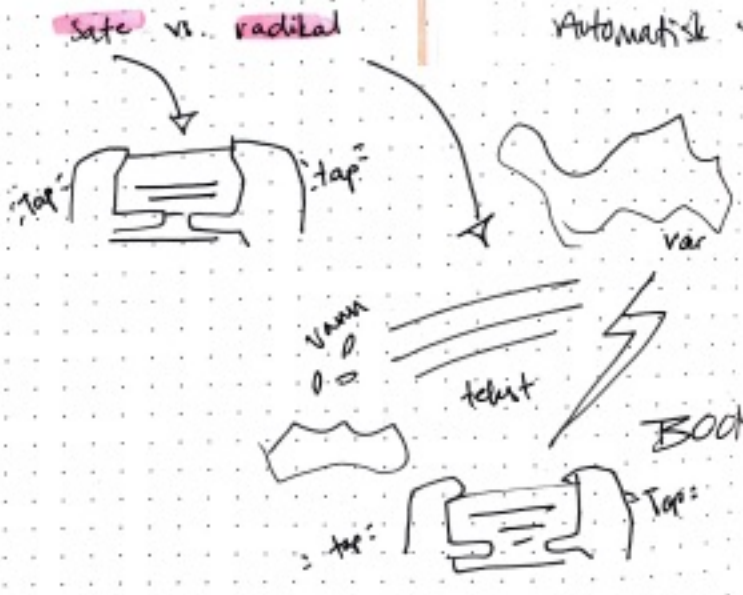 safe vs. radikal
Automatisk
Tap
tap
vær
vann
tekst
BOOM
tap
Tap